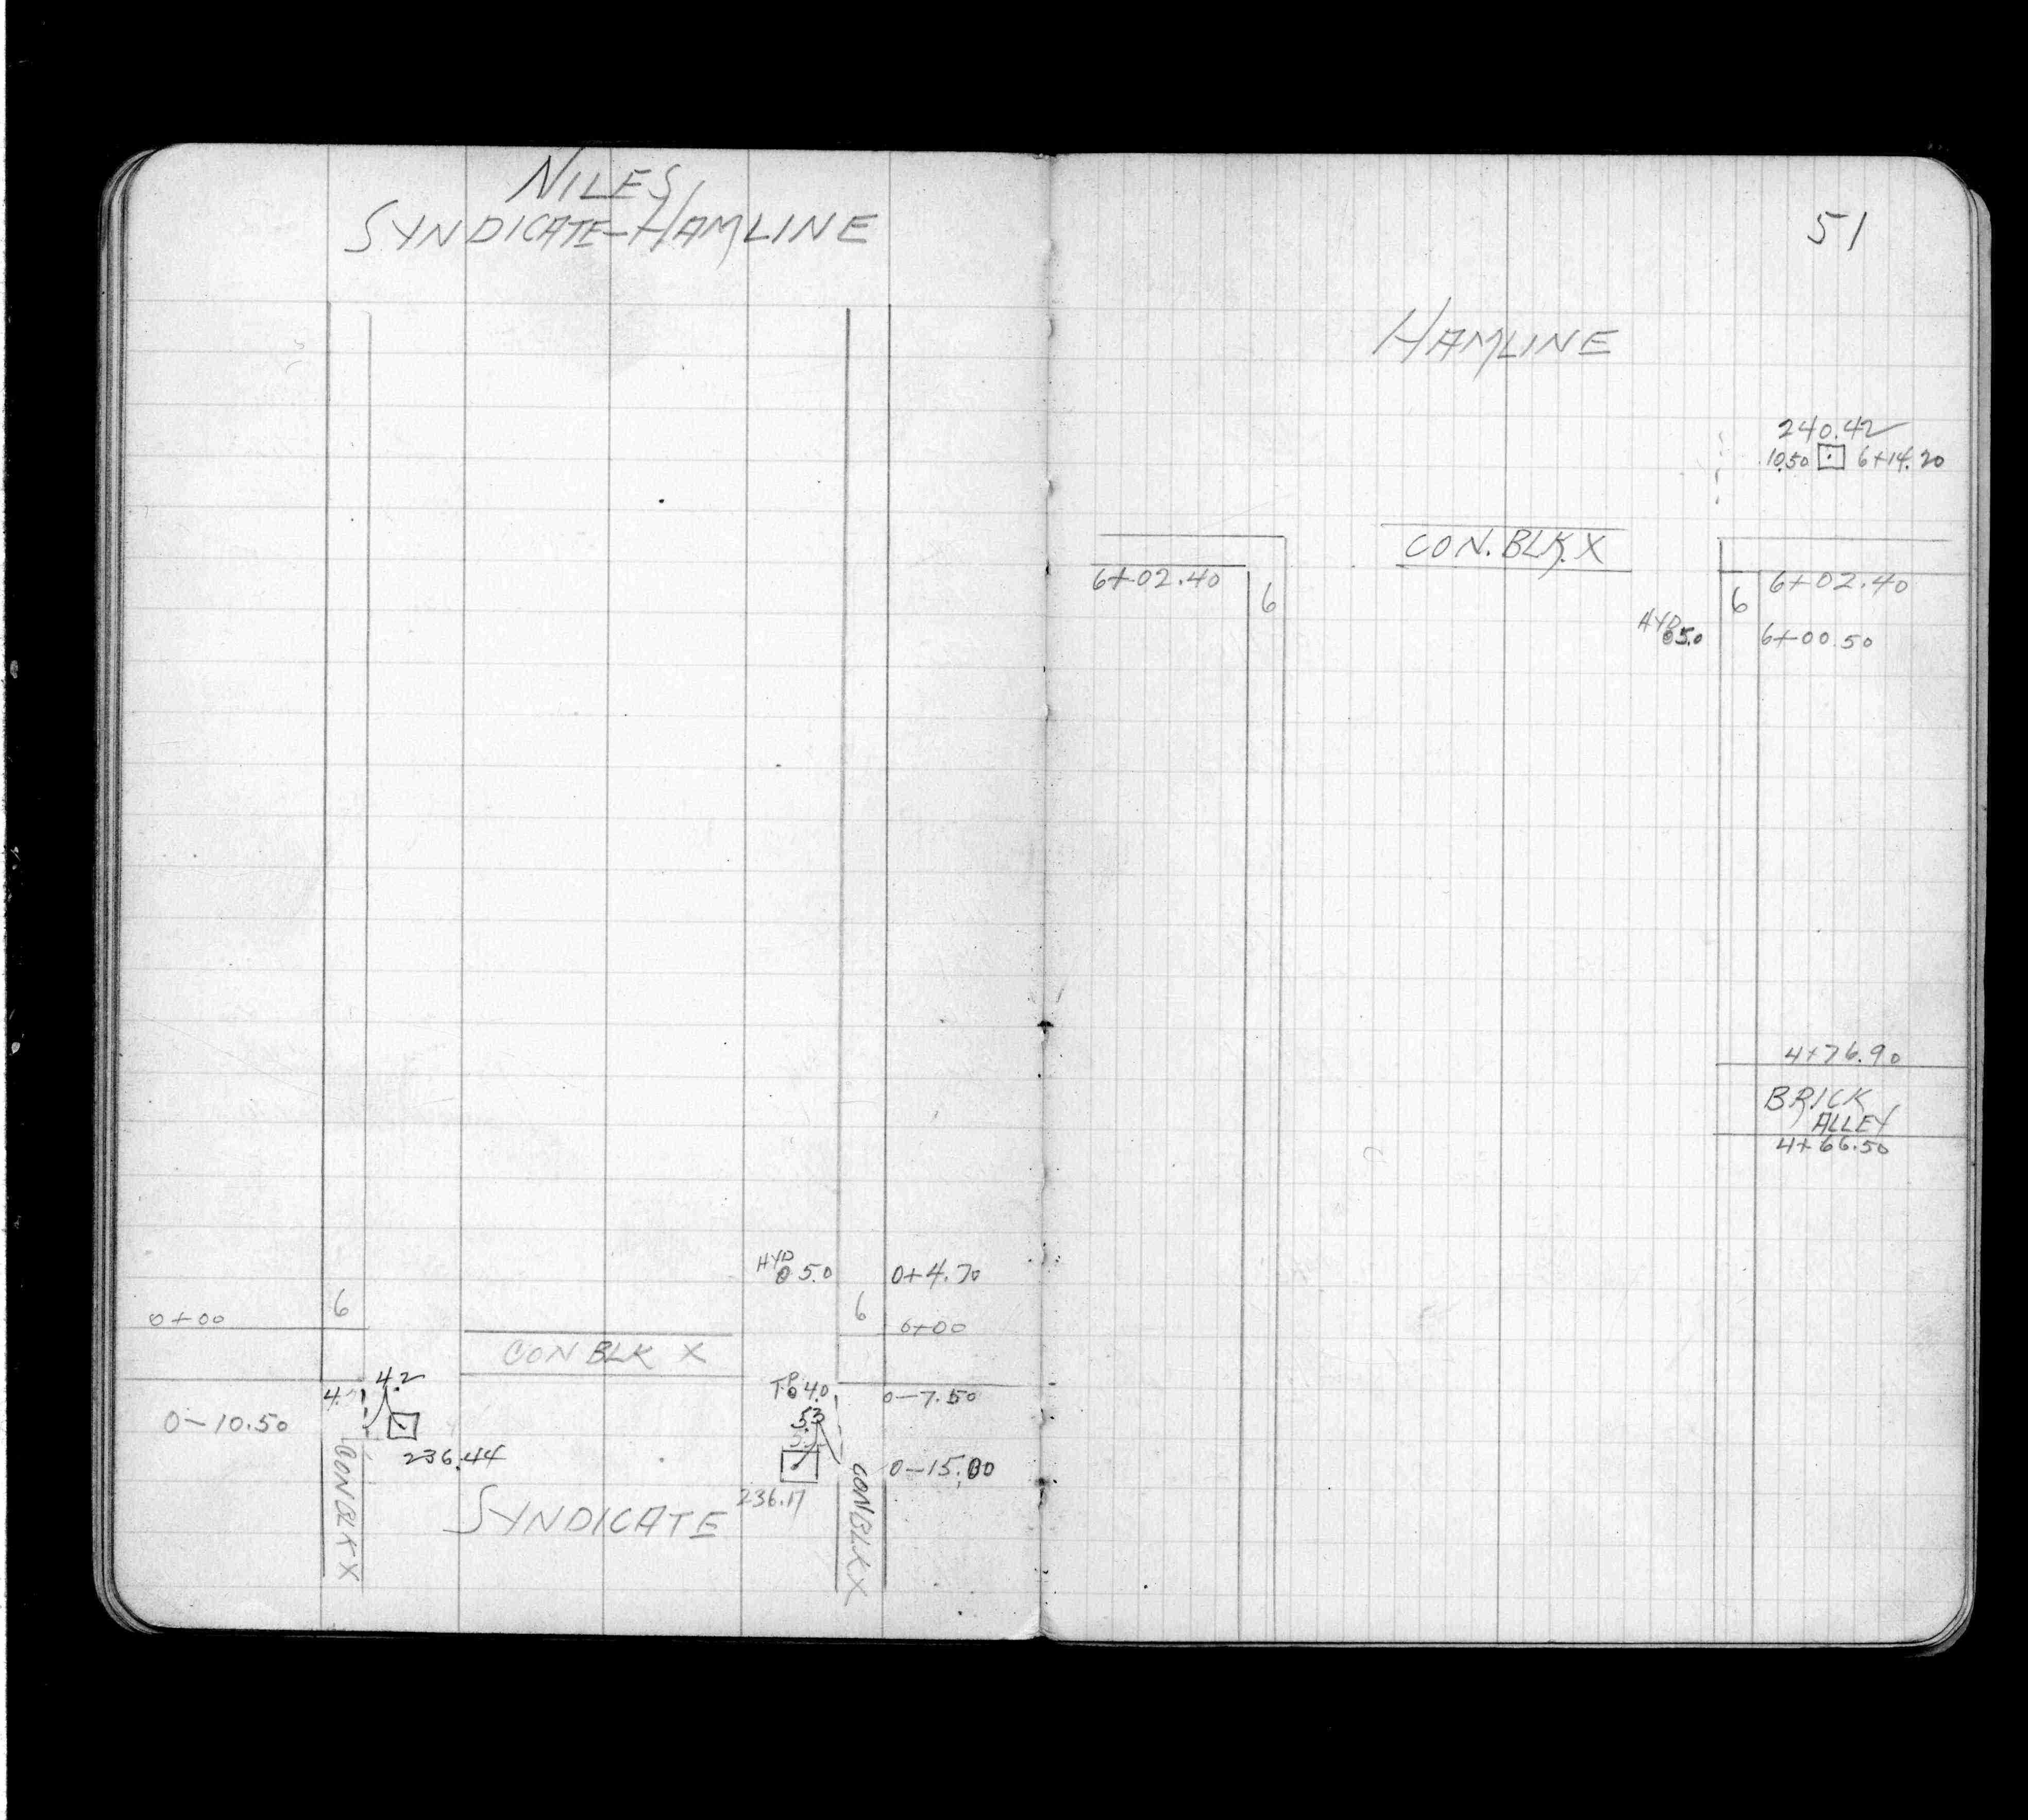 NILES
SYNDICATE-HAMLINE
HYD
5.0
0+4.70
6
6
0+00
0+00
CON BLK X
4.2
4.
TP 4.0
0-7.50
5.3
0-10.50
236.44
0-15.00
236.17
CON BLK X
CON BLK X
SYNDICATE
51
HAMLINE
240.42
10.50
6+14.20
CON. BLK. X
6+02.40
6
6
6+02.40
HYD
5.0
6+00.50
4+76.90
BRICK
ALLEY
4+66.50